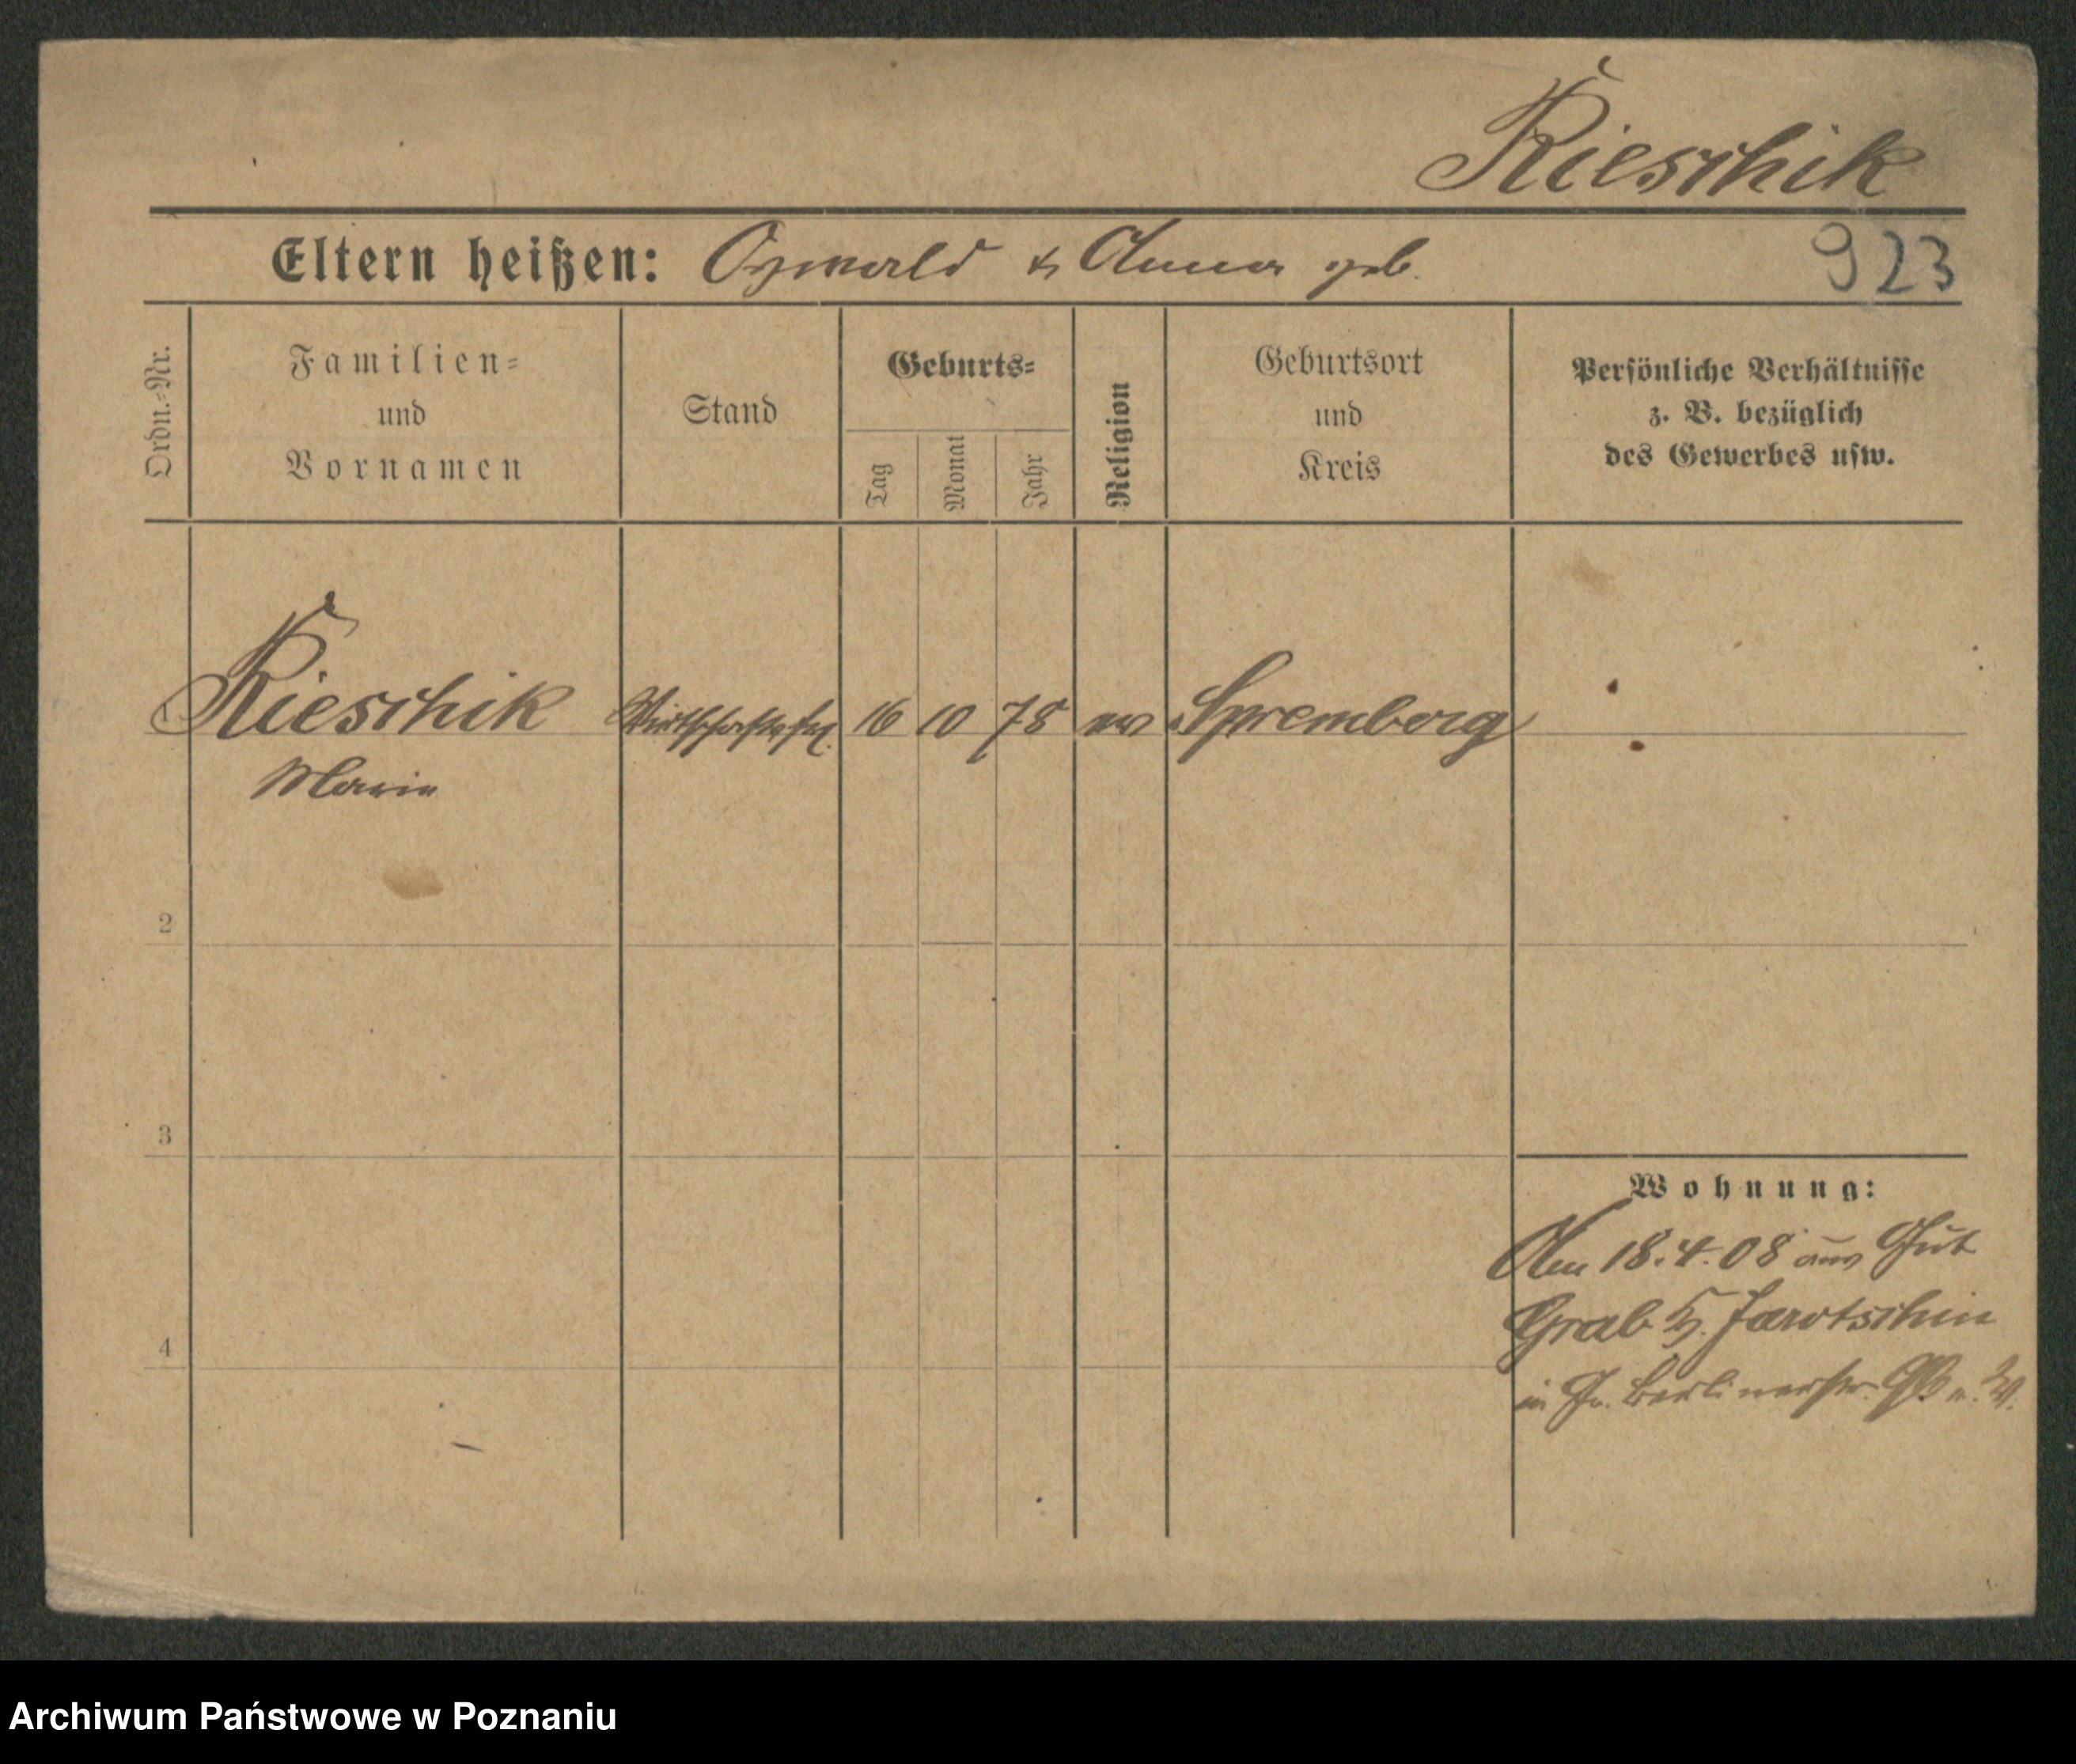 Kieschik
Eltern heißen: Oswald & Anna geb.
923
Ordn.-Nr.
Familien-
und
Vornamen
Stand
Geburts-
Tag
Monat
Jahr
Religion
Geburtsort
und
Kreis
Persönliche Verhältnisse
z. B. bezüglich
des Gewerbes usw.
1 Kieschik Wirtschaftsfrl. 16 10 78 ev Spremberg
Marie
2
3
4
Wohnung:
Am 18.4.08 aus Gut
Grab K. Jarotschin
in Berlinerstr.
Archiwum Państwowe w Poznaniu